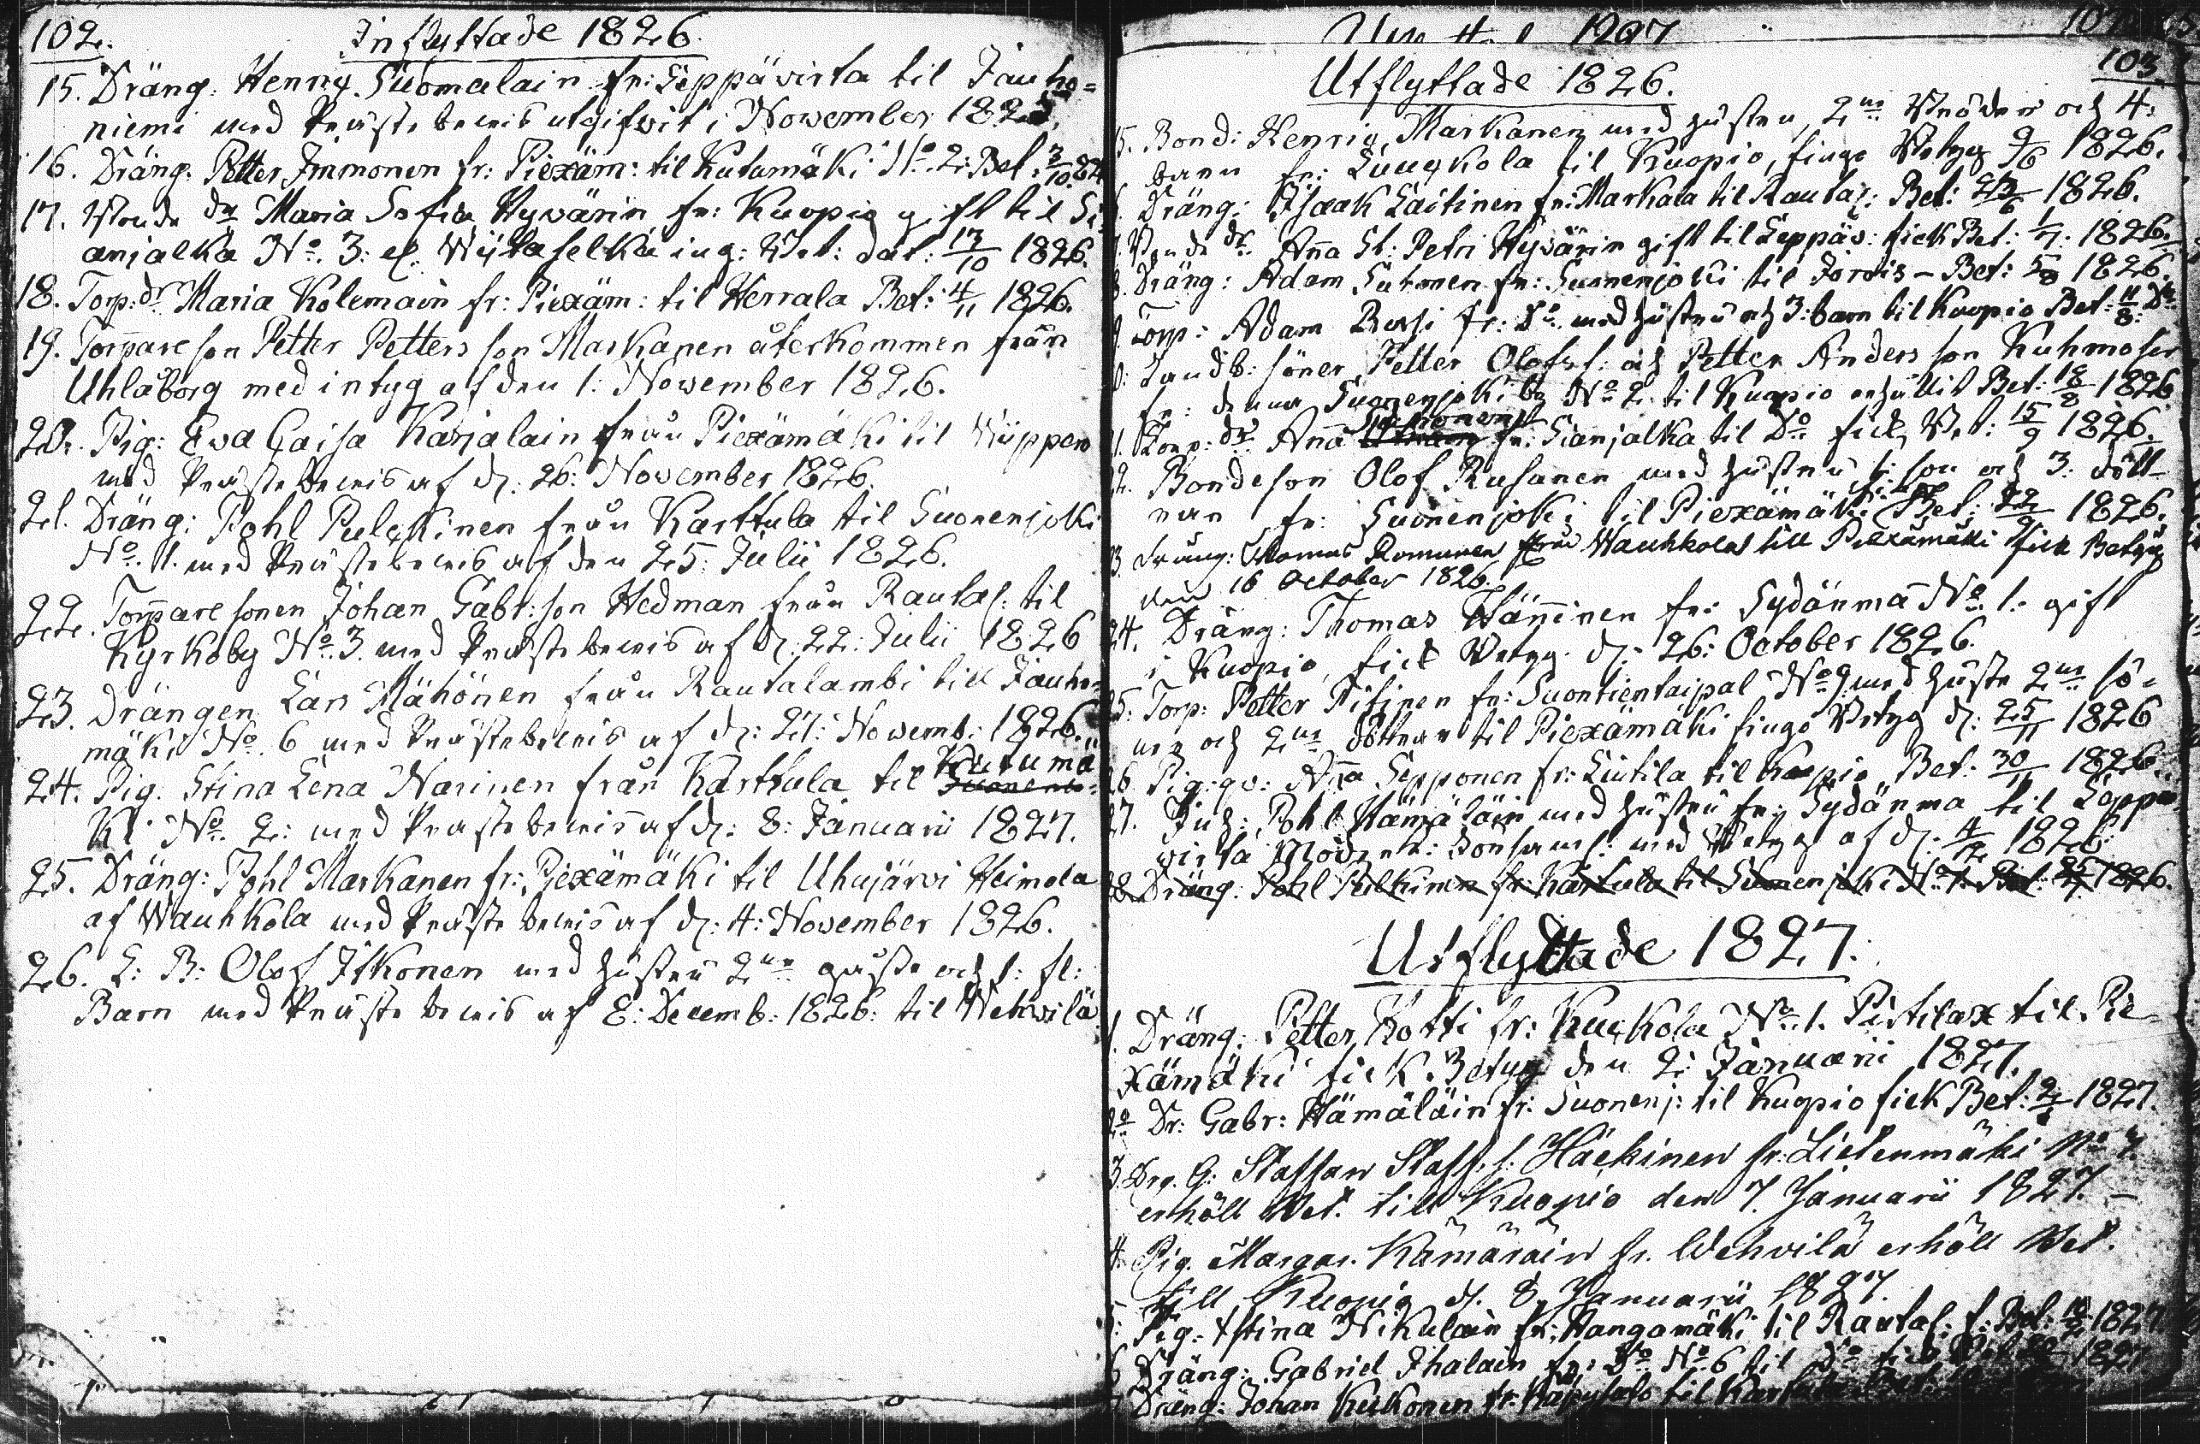 102.
Inflyttade 1826.
15. Dräng: Henrig Suomalain fr: Leppävirta til Jauho=
niemi med Prästebewis utgifwit i November 182
16. Dräng: Petter Immonen fr: Piexäm: til Kutumäki No 2: Bet: 3/10 24
17. Bonde dr Maria Sofia Hyvärin fr: Kuopio gift til Si=
anjalka No. 3: el. Wijtaselkä ing: Bet: dat: 13/10 1826.
18. Torp: dr Maria Kolemain fr: Piexäm: til Herrala Bet: 4/11 1826.
19. Torpare son Petter Petters son Markanen återkommen från
Uhlåborg med intyg af den 1: November 1826.
20. Pig: Ewa Caisa Karjalain från Piexämäki til Wiippero
med Prästebewis af d: 26: November 1826.
21. Dräng: Pohl Pulckinen från Karttula til Suonenjoki
No. 1. med Prästebewis af den 25: Julii 1826.
22. Torpare sonen Johan Gabr: son Hedman från Rautal: til
Kyrkoby No. 3. med Prästebewis af d: 22: Julii 1826
23. Drängen Lars Mähönen från Rautalambi till Jauho=
mäki No. 6 med Prästebewis af d: 27: Novemb: 1826.
24. Pig. Stina Lena Narinen från Karttula til Kutumä
ki No. 2: med Prästebewis af d: 8: Januarii 1827.
25. Dräng: Pohl Markanen fr: Piexämäki til Uhujärvi Heimola
af Wauhkola med Prästebewis af d: 4: November 1826.
26. L: B: Olof Itkonen med hustru 2ne gosse och 1: fl:
Barn med Prästebewis af 8: Decemb: 1826: til Wehvilä
1827
103.
Utflyttade 1826.
15. Bond: Henrig Markanen med hustru, 2ne Bröder och 4:
barn fr: Lungkola til Kuopio, fingo Betyg 9/6 1826.
Dräng: Isaak Laitinen fr: Markala til Rautal: Bet: 1826.
Bonde dr. Anna St: Petri Hyvärin gift til Leppäv: fick Bet: 1/7: 1826.
Dräng: Adam Suhonen fr: Suonenjoki til Jorois - Bet: 5/8 1826.
Torp: Adam Rossi fr: Do med hustru och 3: barn til Kuopio Bet: 11/8: Do
Landb: söner Petter Olofs s: och Petter Anders son Kuhmoser
fr: denna Suonenjoki by No 2 til Kuopio erhållit Bet: 18/8 1826
Torp: dr Anna fr: Sianjalka til Do fick Bet: 15/9 1826.
Bondeson Olof Rusanen med hustru 1: son och 3: dött=
rar fr: Suonenjoki til Piexämäki Bet: 22/9 1826.
Dräng: Thomas Romunen från Wauhkola till Piexämäki fick Betyg
den 16 October 1826.
24. Dräng: Thomas Hänninen fr: Sydänmā No. 1: gift
i Kuopio, fick Betyg d: 26: October 1826.
25: Torp: Petter Pitinen fr: Suontientaipal No 9 med hustr 2ne sö=
ner och 2ne döttrar til Piexämäki fingo Betyg d: 25/11 1826
26 Pig: qv: Anna Sepponen fr: Liutila til Kuopio Bet: 30/11 1826.
27. Inh: Pohl Hämäläin med hustru fr: Sydänma til Leppä
virta med Betyg af d: 4/12 1826.
28 Dräng: Pohl Pulkinen fr: Karttula til Suonenjoki No 1. Bet: 25/7 1826.
Utflyttade 1827.
1. Dräng: Petter Kotti fr: Kuckola No. 1. Pistilax til Pie=
xämäki fick Betyg den 2: Januarii 1827.
2o Dr: Gabr: Hämäläin fr: Suonenj: til Kuopio fick Bet: 2/1 1827.
3. Drg. G: Staffan Staff. s: Häckinen fr: Lietenmäki No 7
erhöll Bet. till Kuopio den 7. Januarii 1827. -
4. Pig. Margar. Kämäräin fr. Wehvilä erhöll Bet.
till Kuopio d. 8. Januarii 1827.
5: Pig: Stina Nikulain fr: Kangamäki til Rautal: f: Bet: 1827
6 Dräng: Gabriel Ihalain fr: Do No 6 til Do fick Bet 1827
Dräng: Johan Kukkonen fr: til Karttula